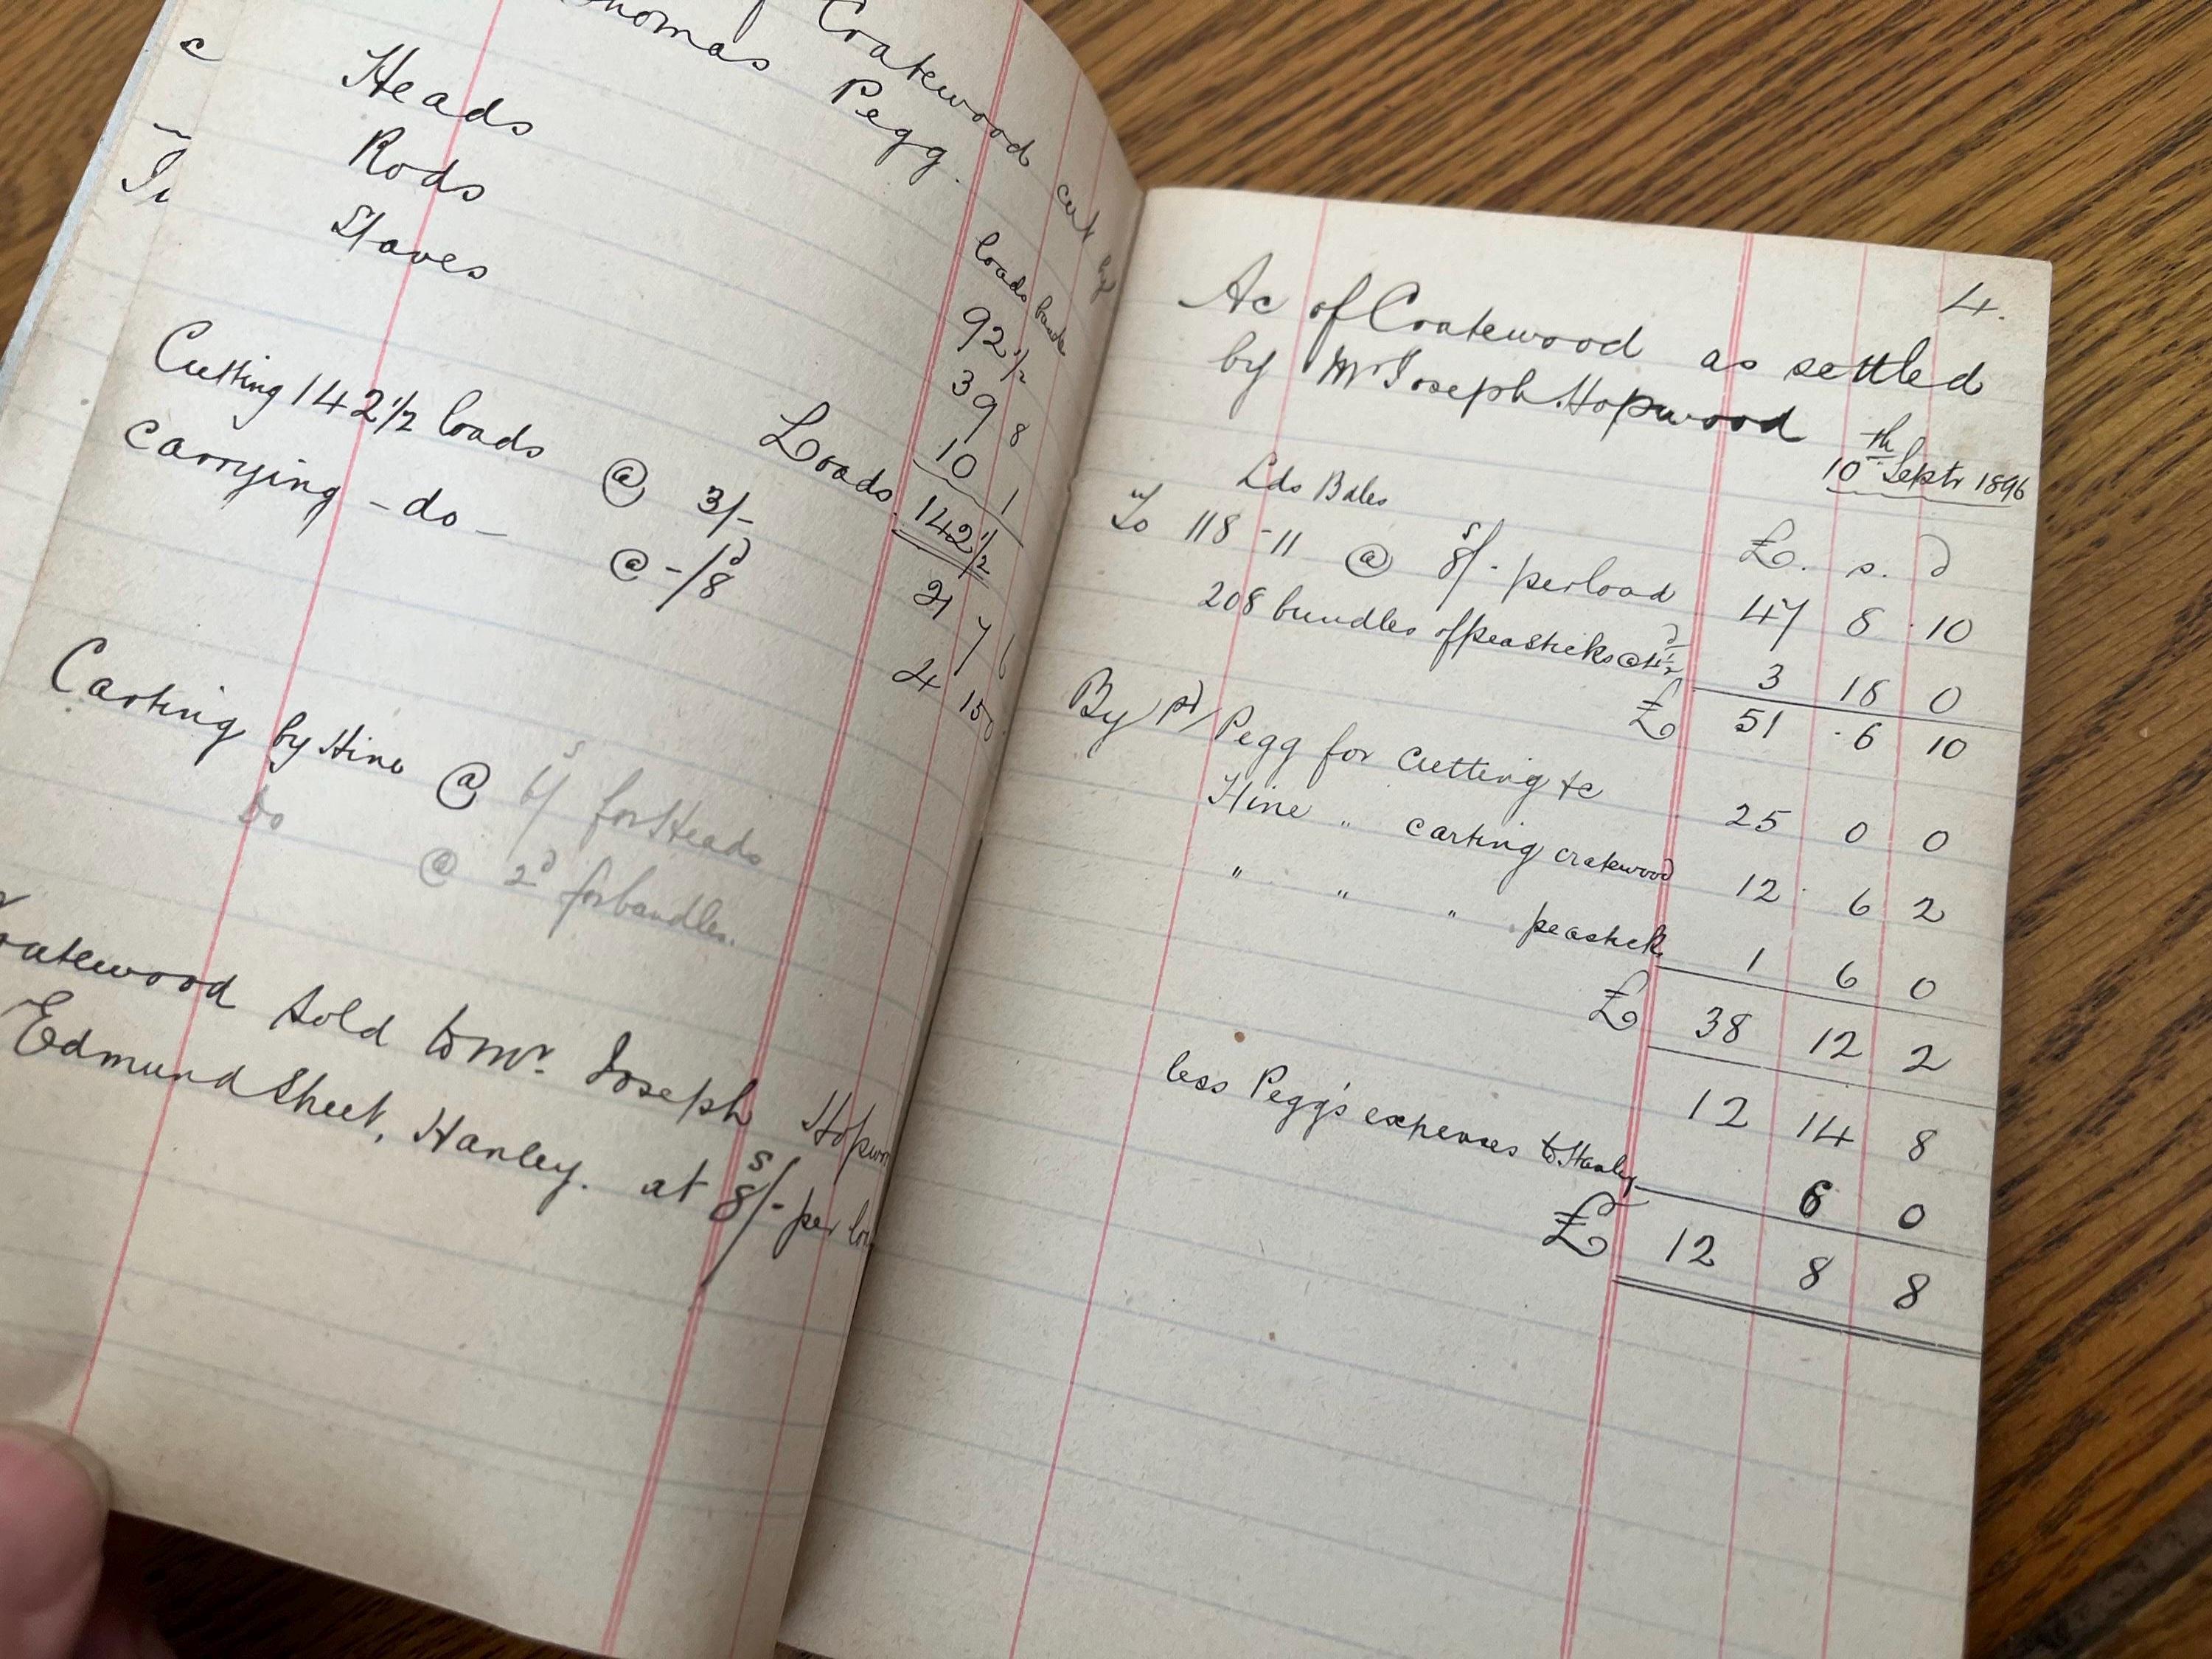 Cratewood cut by
Thomas Pegg.
loads bands
Heads 92 1/2
Rods 39 8
Staves 10 1
Loads 142 1/2
Cutting 142 1/2 loads @ 3/- 21 7 6
carrying - do - @ -/8d 4 15 0
Carting by Hine @ 6s/ for Heads
Do @ 2d for bandles.
Cratewood sold to Mr. Joseph Hopwo
Edmund Street, Hanley. at 8s/- per loa
4.
Ac of Cratewood as settled
by Mr Joseph Hopwood
10th Septr 1896
Lds Bdles £. s. d
To 118 - 11 @ 8s/- per load 47 8 10
208 bundles of peasticks @ 4 1/2d 3 18 0
£ 51 6 10
By pd/ Pegg for cutting &c 25 0 0
Hine " carting cratewood 12 6 2
" " " peastick 1 6 0
£ 38 12 2
12 14 8
less Pegg's expenses to Hanley 6 0
£ 12 8 8